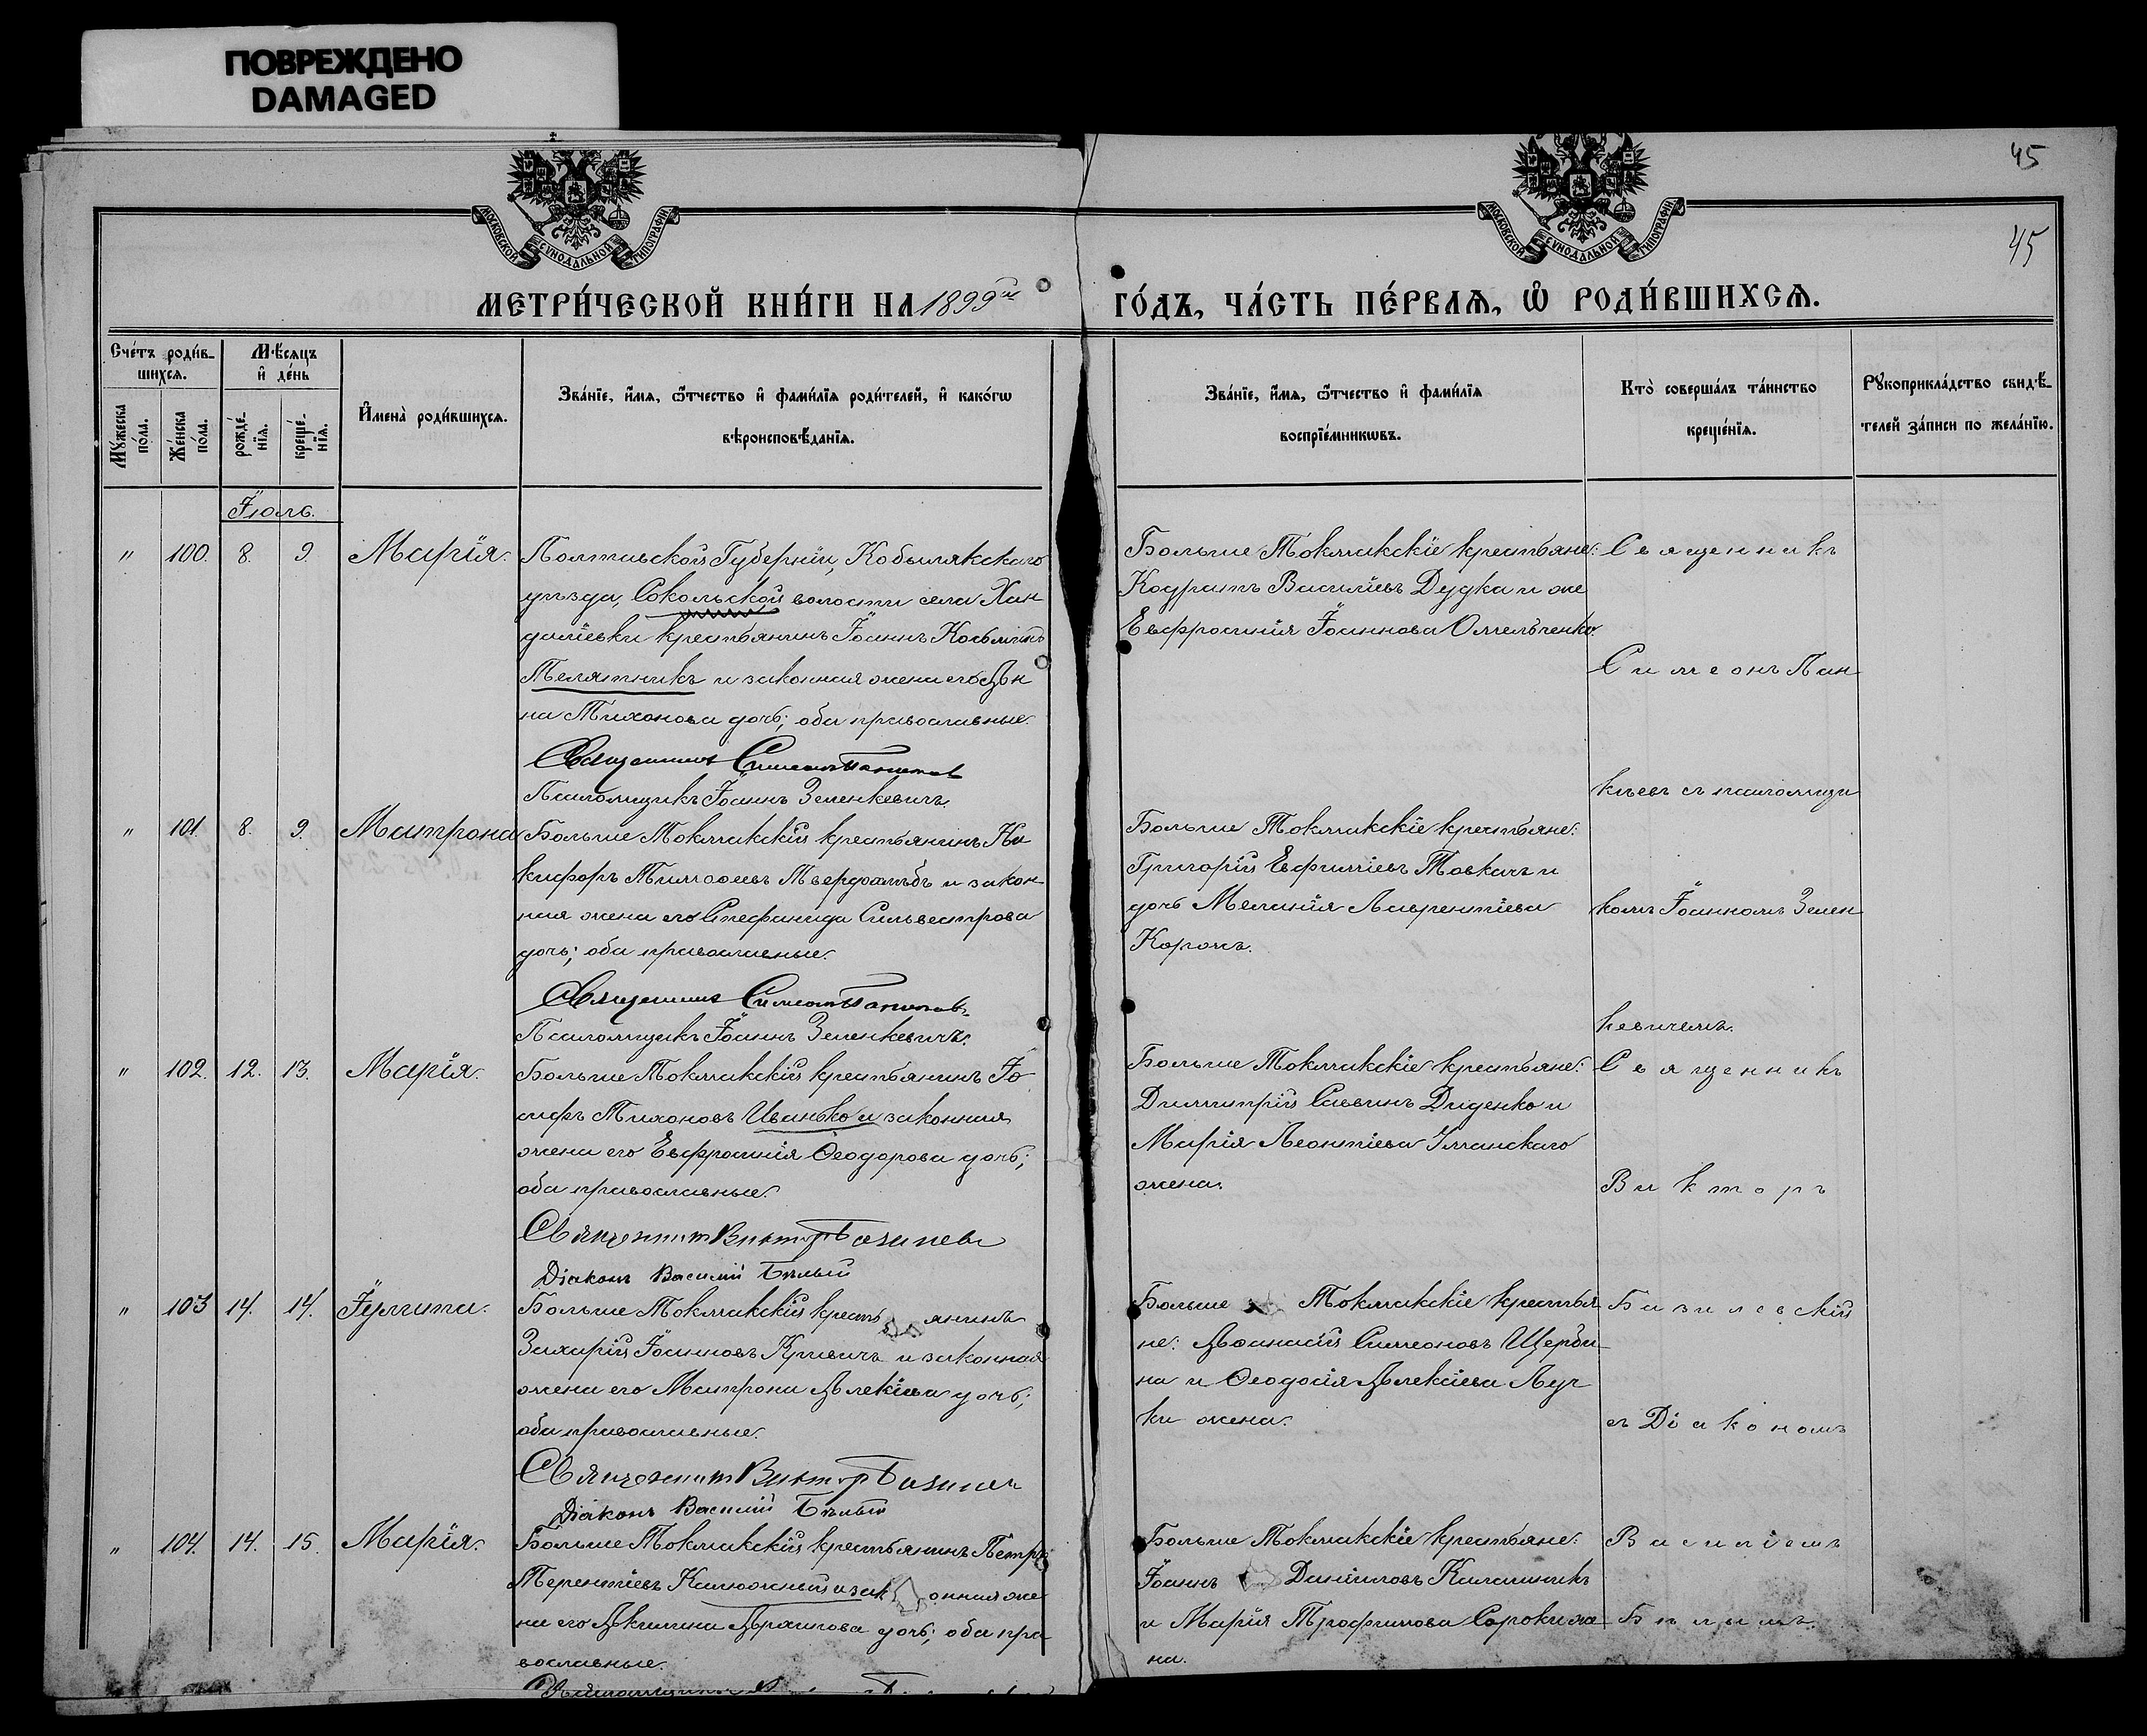 ПОВРЕЖДЕНО
DAMAGED
45
45
МОСКОВСКОЙ СѴНОДАЛЬНОЙ ТИПОГРАФІИ
МОСКОВСКОЙ СѴНОДАЛЬНОЙ ТИПОГРАФІИ
МЕТРИ́ЧЕСКОЙ КНИ́ГИ НА 1899й
ГО́ДЪ, ЧА́СТЬ ПЕ́РВАѦ, Ѽ РОДИ́ВШИХСѦ.
Сче́тъ роди́в-
шихсѧ.
Мꙋ́жеска по́ла.
Же́нска по́ла.
Мѣ́сѧцъ
и҆ де́нь
рожде́-
нїѧ.
креще́-
нїѧ.
И҆мена̀ роди́вшихсѧ.
Зва́нїе, и҆́мѧ, ѻ҆́тчество и҆ фами́лїѧ роди́телей, и҆ како́гѡ
вѣроисповѣ́данїѧ.
Зва́нїе, и҆́мѧ, ѻ҆́тчество и҆ фами́лїѧ
воспрїе́мникѡвъ.
Кто̀ соверша́лъ та́инство
креще́нїѧ.
Рꙋкоприкла́дство свидѣ́-
телей за́писи по жела́нїю.
Іюль.
" 100. 8. 9. Марія.
Полтавской Губерніи, Кобылякскаго
уѣзда, Сокольской волости села Хан
далѣевки крестьянинъ Іоаннъ Косьминъ
Телятникъ и законная жена его Ан
на Тихонова дочь; оба православные.
Священникъ Симеонъ Панкѣевъ
Псаломщикъ Іоаннъ Зеленкевичъ.
Больше Токмакскіе крестьяне:
Кодратъ Василіевъ Дудка и же
Евфросинія Іоаннова Омельченко.
Священникъ
Симеонъ Пан
кѣевъ съ псаломщи
комъ Іоанномъ Зелен
кевичемъ.
" 101. 8. 9. Матрона
Больше Токмакскій крестьянинъ Ни
кифоръ Тимоѳеевъ Твердохлѣбъ и закон-
ная жена его Стефанида Сильвестрова
дочь; оба православные.
Священникъ Симеонъ Панкѣевъ
Псаломщикъ Іоаннъ Зеленкевичъ.
Больше Токмакскіе крестьяне:
Григорій Евфиміевъ Товкачъ и
дочь Меланія Лаврентіева
Корож.
" 102. 12. 13. Марія.
Больше Токмакскій крестьянинъ Іо
сифъ Тихоновъ Иванько и законная
жена его Евфросинія Ѳеодорова дочь;
оба православные.
Священникъ Викторъ Базилев
Діаконъ Василій Бѣлый
Больше Токмакскіе крестьяне:
Димитрій Саввинъ Диденко и
Марія Леонтіева Уманскаго
жена.
Священникъ
Викторъ
Базилевскій
съ Діакономъ
Василіемъ
Бѣлымъ.
" 103 14. 14. Іулита.
Больше Токмакскій кресть янинъ
Захарій Іоанновъ Кривичъ и законная
жена его Матрона Алексіева дочь;
оба православные.
Священникъ Викторъ Базилев
Діаконъ Василій Бѣлый
Больше Токмакскіе крестья
не: Аѳанасій Симеоновъ Щерби-
на и Ѳеодосія Алексіева Луч
ки жена.
" 104. 14. 15. Марія.
Больше Токмакскій крестьянинъ Петръ
Терентіевъ Калюжный и зак онная же
на его Акилина Архипова дочь; оба пра-
вославные.
Больше Токмакскіе крестьяне:
Іоаннъ Даніиловъ Калашникъ
и Марія Трофимова Сорокина же
на.